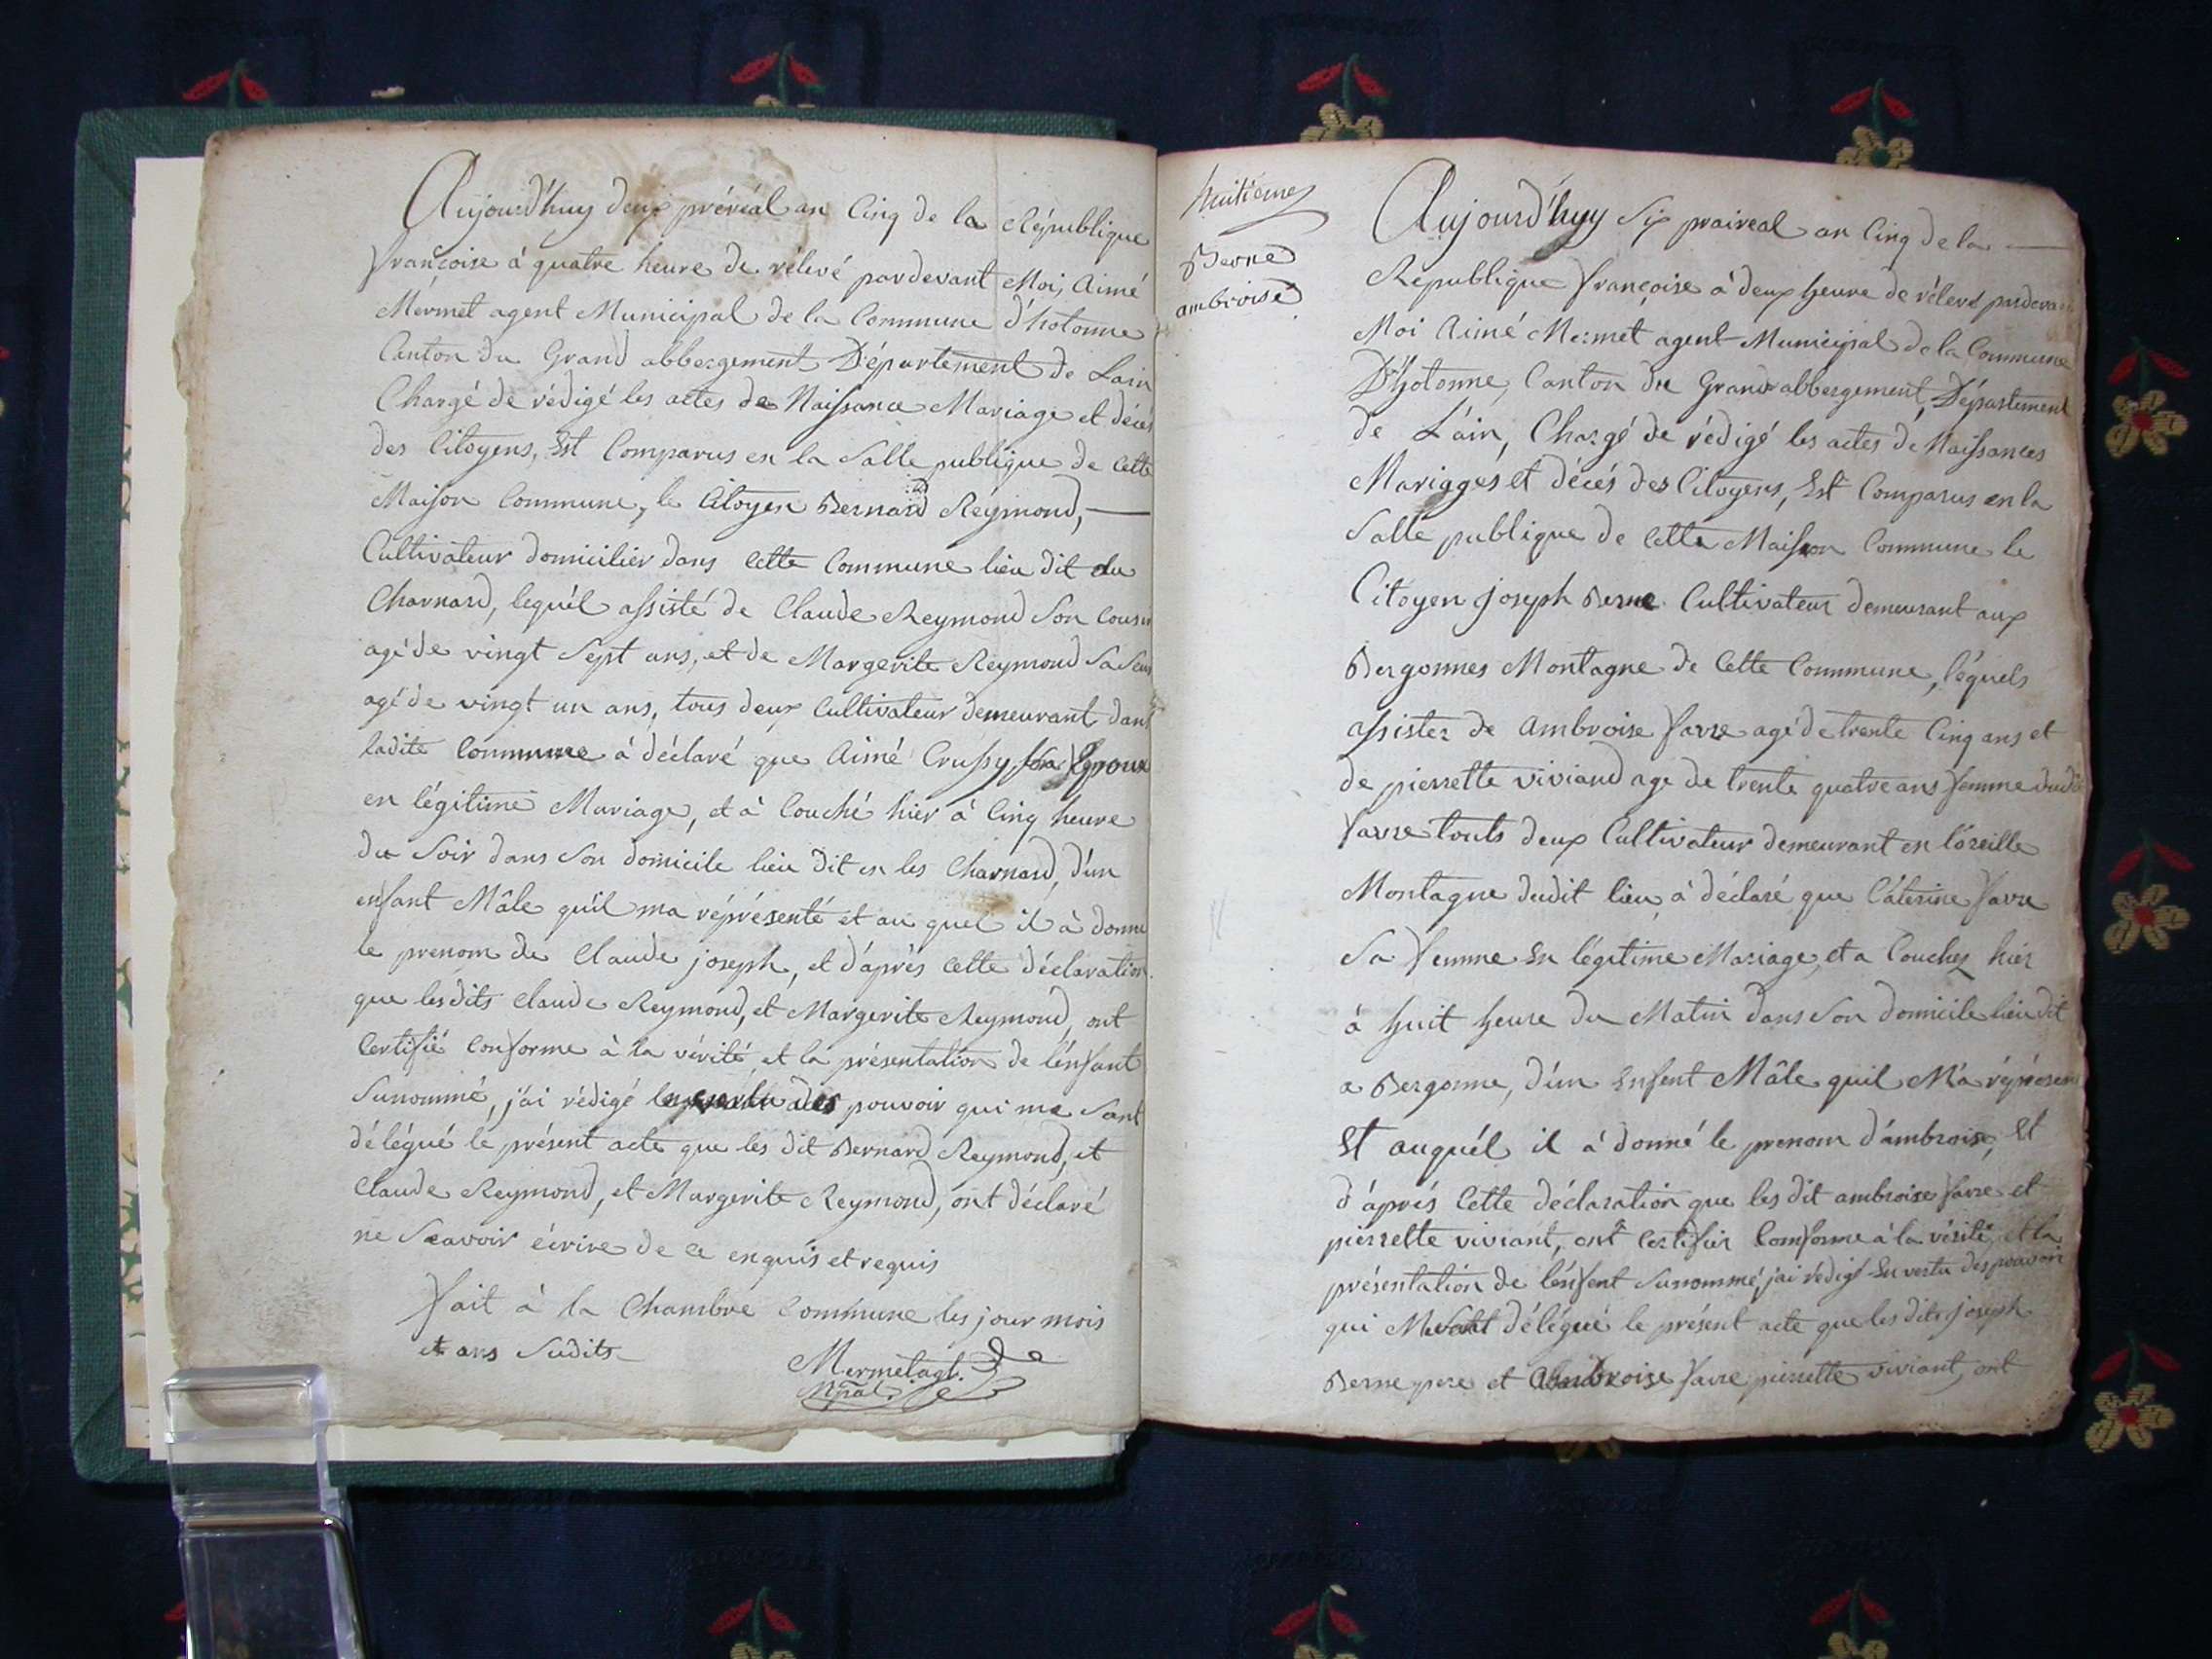 Aujourd'huy deux préréal an Cinq de la République
françoise à quatre heure de rélevé pardevant Moi, Aimé
Mérmet agent Municipal de la Commune d'hotonne
Canton du Grand abbergement Département de Lain
Chargé de rédigé les actes de Naissance Mariage et décés
des Citoyens, Est Comparus en la Salle publique de Cette
Maison Commune, le Citoyen Bernard Réymond,
Cultivateur domicilier dans Cette Commune lieu dit du
Charnard, lequél assisté de Claude Reymond Son Cousin
agé de vingt Sept ans, et de Margerite Reymond Sa Seur
agé de vingt un ans, tous deux Cultivateur demeurant dans
ladite Commune à déclaré que Aimé Crussy Son Epouse
en légitime Mariage, et à Couché hier à Cinq heure
du Soir dans Son domicile lieu dit en les Charnard, d'un
enfant Mâle qu'il ma réprésenté et au quel il à donné
le prenom de Claude joseph, et d'après Cette déclaration
que lesdits Claude Reymond, et Margerite Reymond, ont
Certifié Conforme à la vérité, et la présentation de l'énfant
Sunommé, j'ai rédigé en vertu des pouvoir qui me Sont
délégué le présent acte que les dit Bernard Reymond, et
Claude Reymond, et Margerite Reymond, ont déclaré
ne Scavoir écrire de ce enquis et requis
fait à la Chambre Commune les jour mois
et ans Sudits
Mermet agt.
Mpal.
huitieme
Berne
ambroise
Aujourd'huy Six praireal an Cinq de la
République françoise à deux heure de rélevé pardevant
Moi Aimé Mermet agent Municipal de la Commune
D'hotonne, Canton du Grand abbergement, Département
de L'ain, Chargé de rédigé les actes de Naissances
Mariages et décés des Citoyens, Est Comparus en la
Salle publique de Cette Maison Commune le
Citoyen Joseph Berne Cultivateur demeurant aux
Bergonnes Montagne de Cette Commune, léquels
assister de Ambroise favre agé de trente Cinq ans et
de pierrette viviand age de trente quatre ans femme dudit
favre touts deux Cultivateur demeurant en l'oreille
Montagne dudit lieu, à déclaré que Cáterine favre
Sa femme En légitime Mariage, et a Couchez hier
à huit heure du Matin dans Son domicile lieu dit
a Bergonne, d'un Enfent Mâle quil M'a réprésenté
Et auquél il à donné le prenom d'ámbroise, Et
d'áprés Cette déclaration que les dit ambroise favre et
pierrette viviant, ont Certifier Comforme à la vérité, et la
présentation de l'énfent Sunommé, j'ai rédigé En vertu des pouvoir
qui Me Sont délégué le présent acte que les dits joseph
Berne pere et Ambroise favre pierrette viviant, ont